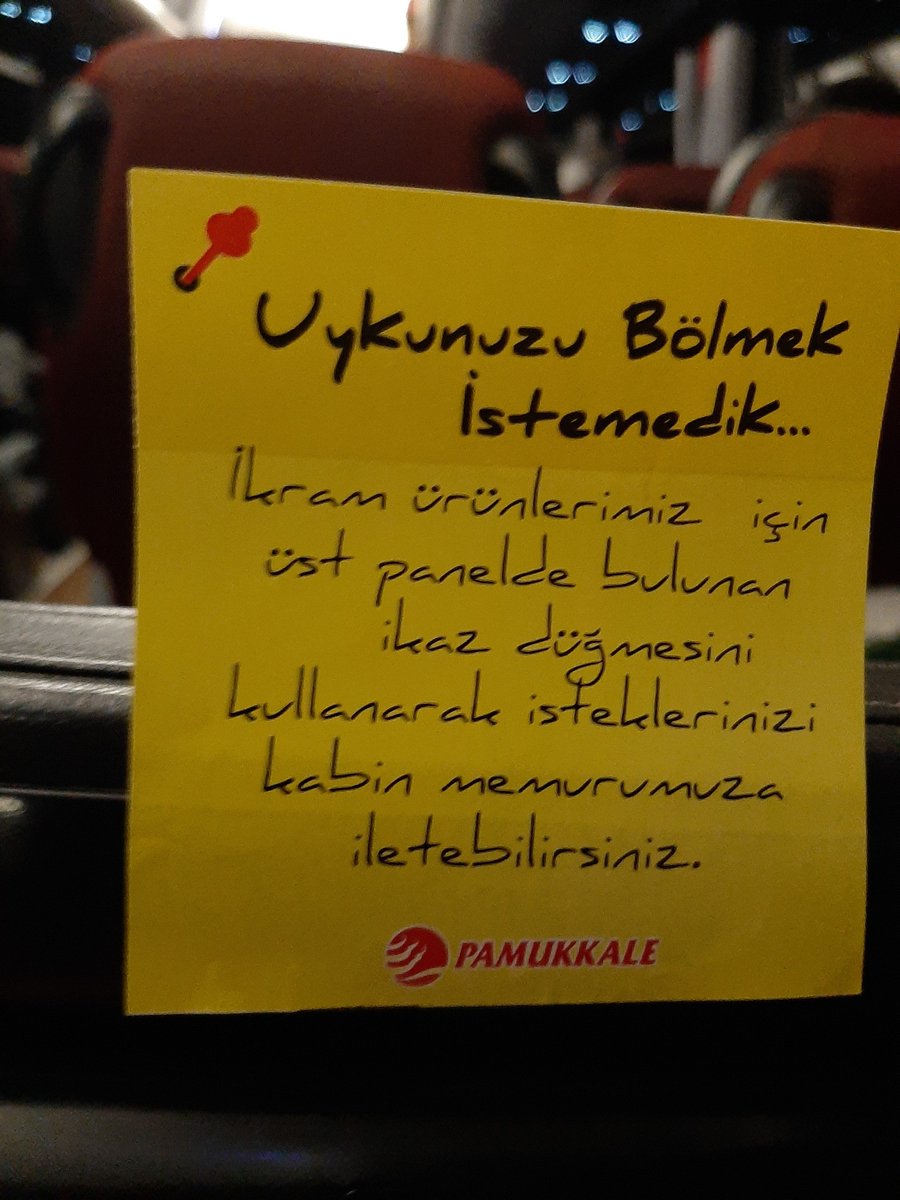 Uykunuzu Bölmek
İstemedik...
İkram ürünlerimiz için
üst panelde bulunan
ikaz düğmesini
kullanarak isteklerinizi
kabin memurumuza
iletebilirsiniz.
PAMUKKALE